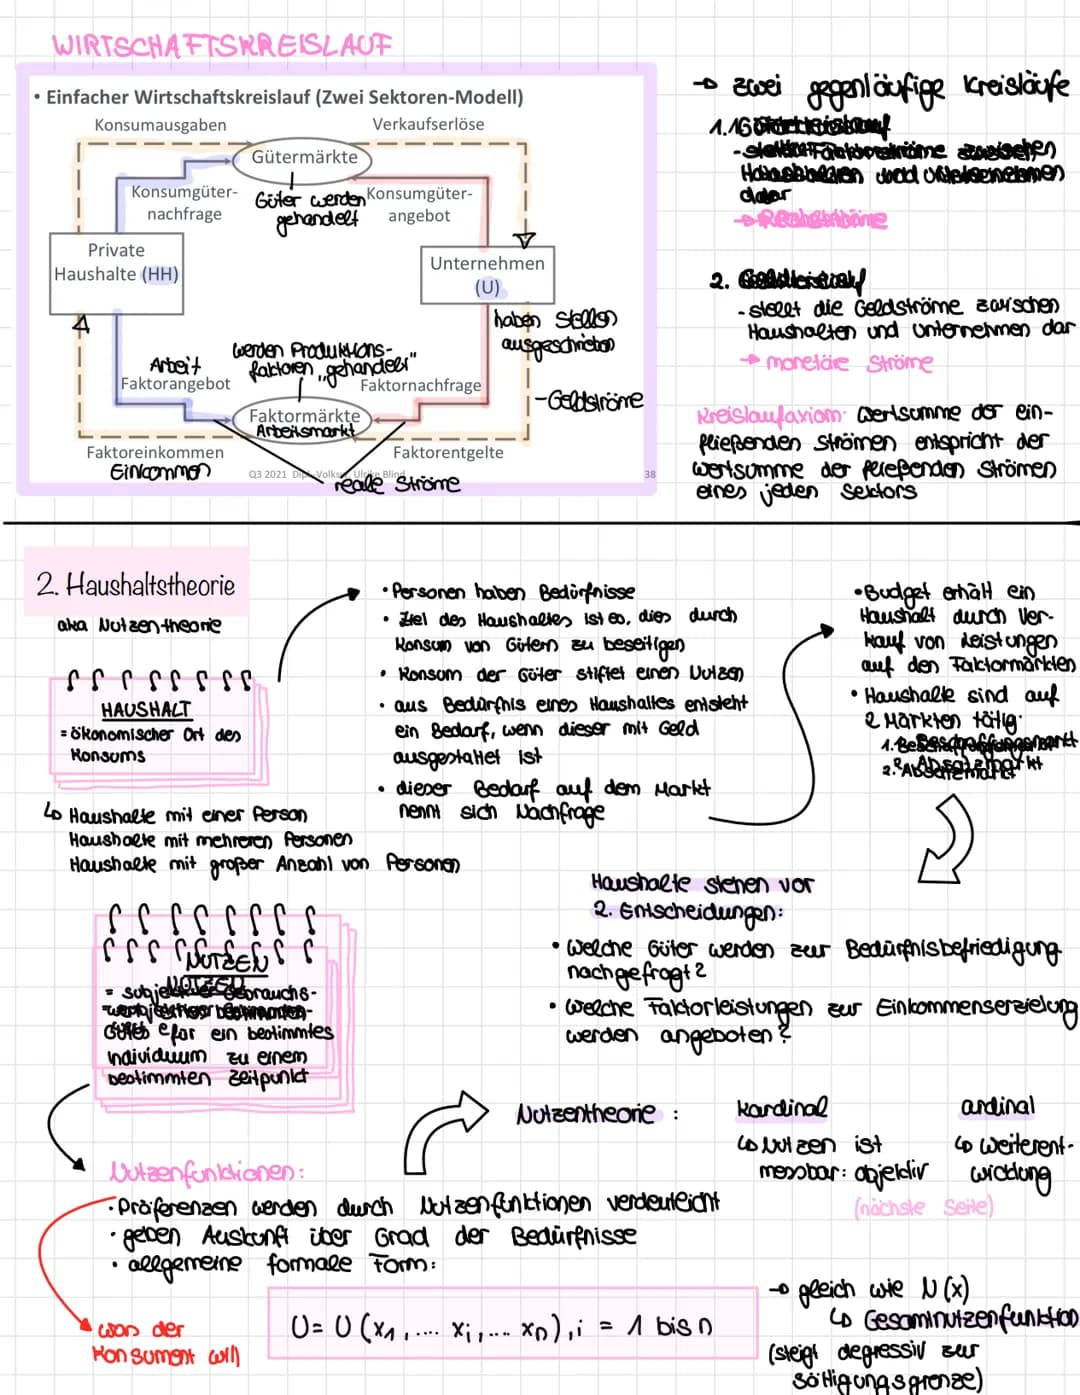 WIRTSCHAFTSKREISLAUF
• Einfacher Wirtschaftskreislauf (Zwei Sektoren-Modell)
Konsumausgaben
Verkaufserlöse
Gütermärkte
Konsumgüter-
nachfrage
Güter werden
gehandelt
Konsumgüter-
angebot
Private
Haushalte (HH)
Unternehmen
(U)
haben Stellen
ausgeschrieben
werden Produktions-
faktoren „gehandelt"
Arbeit
Faktorangebot
Faktornachfrage
-Geldströme
Faktormärkte
Arbeitsmarkt
Faktoreinkommen
Einkommen
Faktorentgelte
Q3 2021 Volksw. Ulrike Blind
38
reale Ströme
→ zwei gegenläufige Kreisläufe
dar
2.
- stellt die Geldströme zwischen
Haushalten und Unternehmen dar
→ monetäre Ströme
Kreislaufaxiom: Wertsumme der ein-
fließenden Strömen entspricht der
Wertsumme der fließenden Strömen
eines jeden Sektors
2. Haushaltstheorie
aka Nutzentheorie
HAUSHALT
= ökonomischer Ort des
Konsums
↳ Haushalte mit einer Person
Haushalte mit mehreren Personen
Haushalte mit großer Anzahl von Personen
• Personen haben Bedürfnisse
• Ziel des Haushaltes ist es, dies durch
Konsum von Gütern zu beseitigen
• Konsum der Güter stiftet einen Nutzen
• aus Bedürfnis eines Haushaltes entsteht
ein Bedarf, wenn dieser mit Geld
ausgestattet ist
• dieser Bedarf auf dem Markt
nennt sich Nachfrage
• Budget erhält ein
Haushalt durch Ver-
kauf von Leistungen
auf den Faktormärkten
• Haushalte sind auf
2 Märkten tätig:
1. Beschaffungsmarkt
2. Absatzmarkt
Haushalte stehen vor
2. Entscheidungen:
• Welche Güter werden zur Bedürfnisbefriedigung
nachgefragt?
• Welche Faktorleistungen zur Einkommenserzielung
werden angeboten?
NUTZEN
= subjektiver Gebrauchs-
für ein bestimmtes
Individuum zu einem
bestimmten Zeitpunkt
Nutzentheorie :
kardinal
↳ Nutzen ist
messbar: objektiv
ordinal
↳ Weiterent-
wicklung
(nächste Seite)
Nutzenfunktionen:
• Präferenzen werden durch Nutzenfunktionen verdeutlicht
• geben Auskunft über Grad der Bedürfnisse
• allgemeine formale Form:
was der
Konsument will
U= U (x1, .... xi, .... xn), i = 1 bis n
→ gleich wie N(x)
↳ Gesamtnutzenfunktion
(steigt degressiv zur
Sättigungsgrenze)